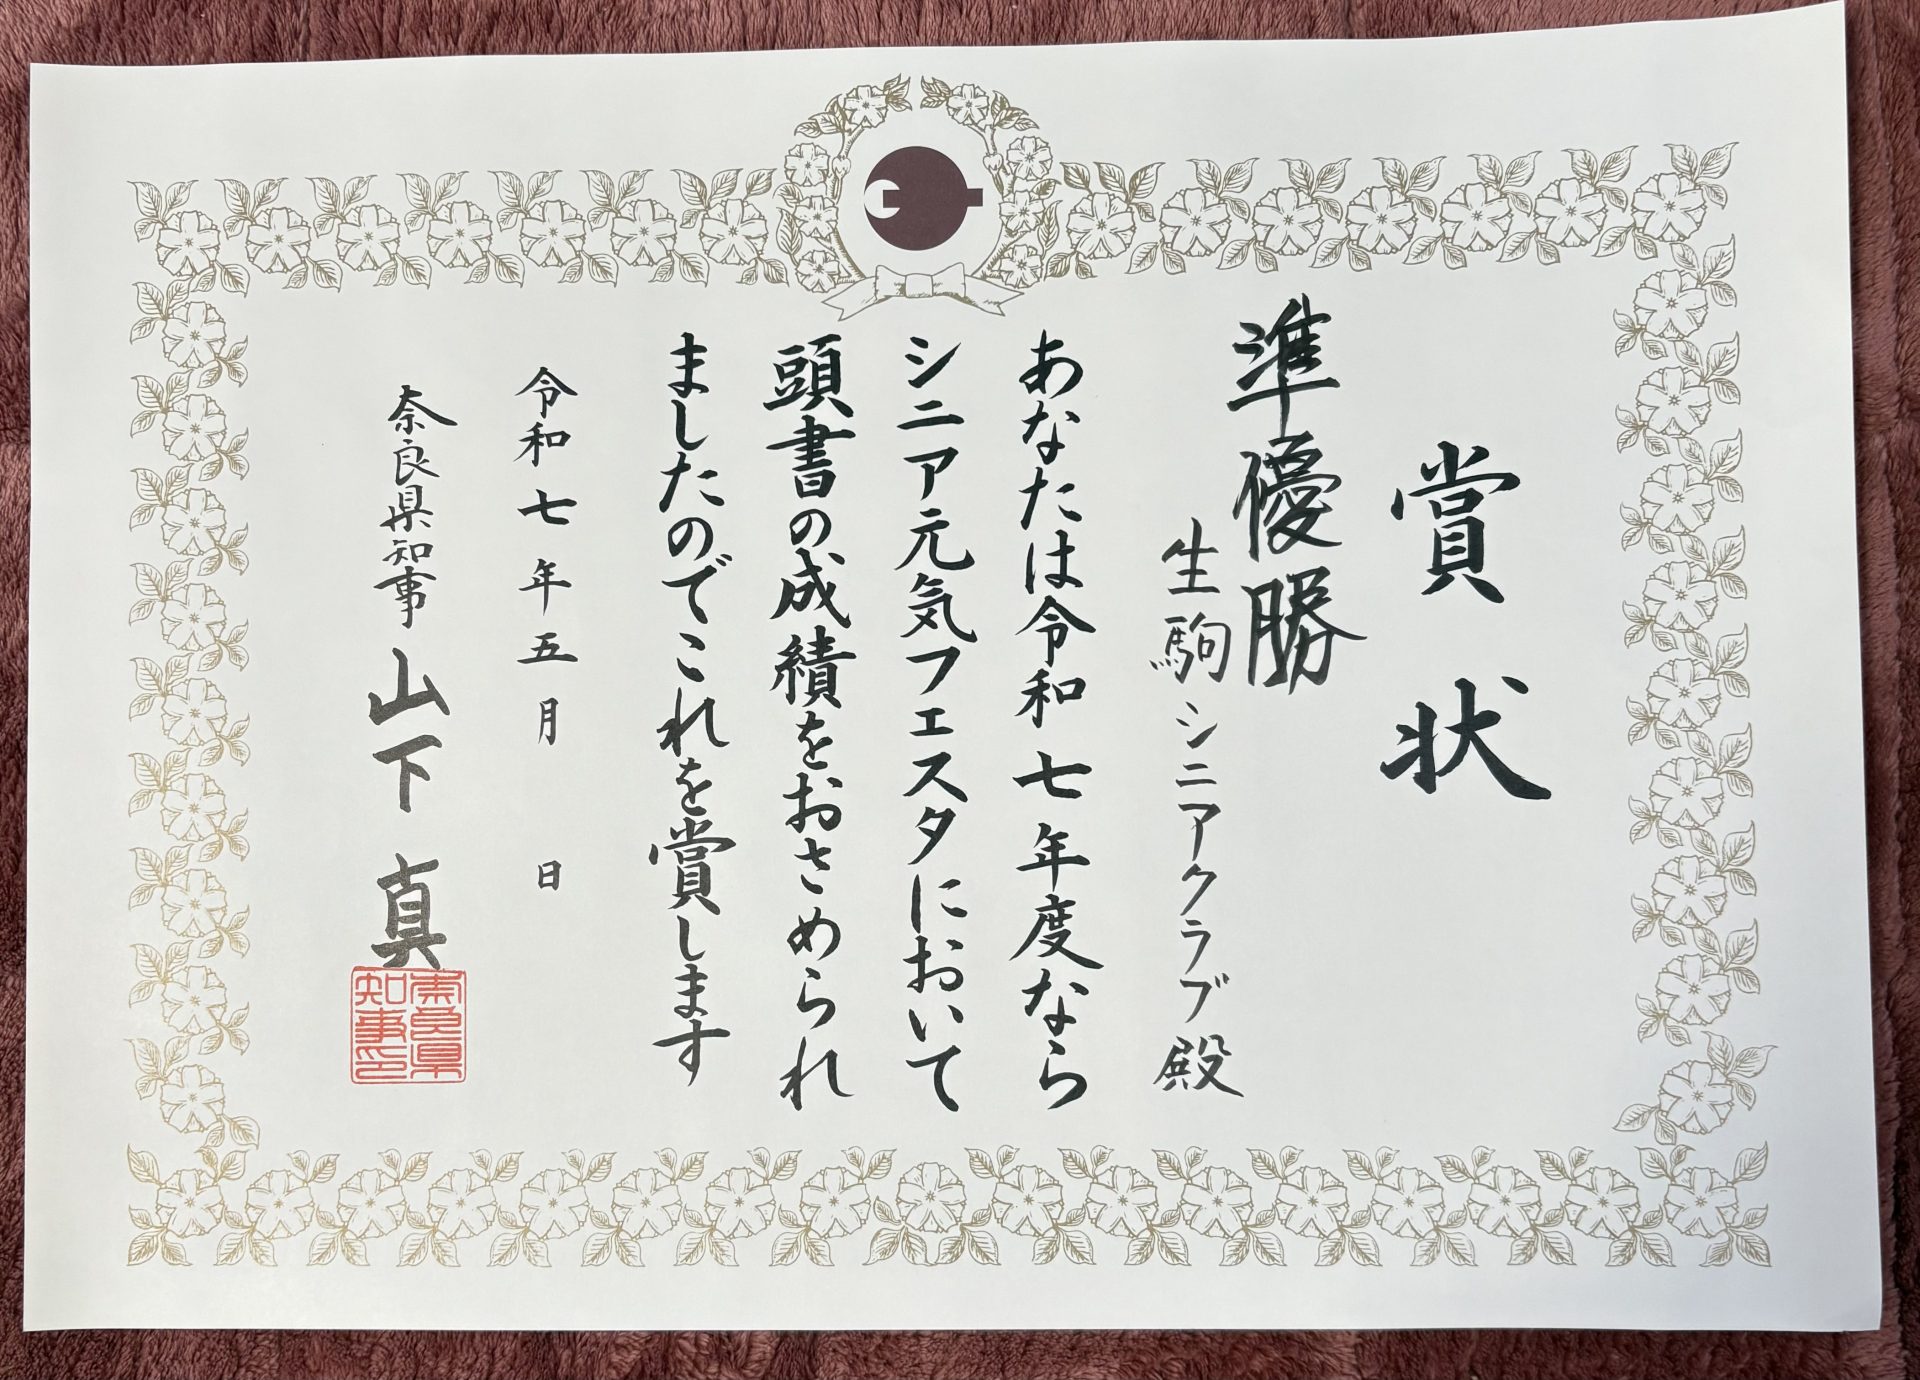 賞状
準優勝
生駒シニアクラブ殿
あなたは令和七年度なら
シニア元気フェスタにおいて
頭書の成績をおさめられ
ましたのでこれを賞します
令和七年五月　日
奈良県知事　山下　真
奈良県
知事印